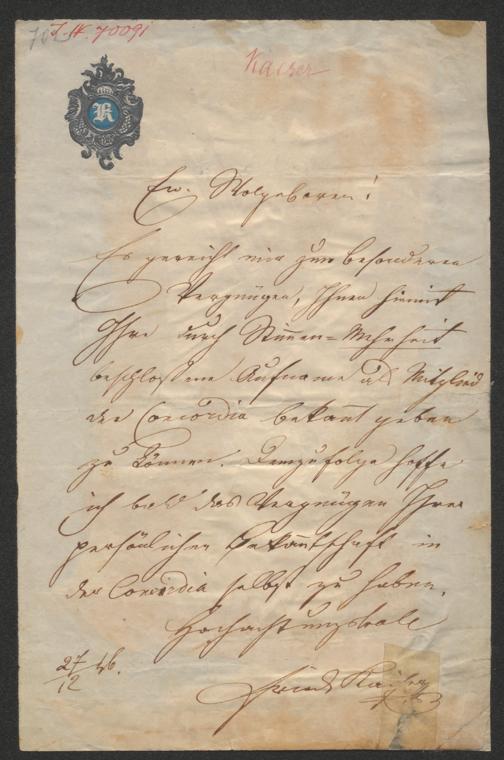 J.N. 70091
Kaiser
K
Ew. Wolgeboren!
Es gereicht mir zum besonderen
Vergnügen, Ihnen hiemit
Ihre durch Stimen=Mehrheit
beschlossene Aufname als Mitglied
der Concordia bekañt geben
zu können. Demzufolge hoffe
ich bald das Vergnügen Ihrer
persönlichen Bekañtschaft in
der Concordia selbst zu haben.
Hochachtungsvoll
27/12 46.
Kaiser